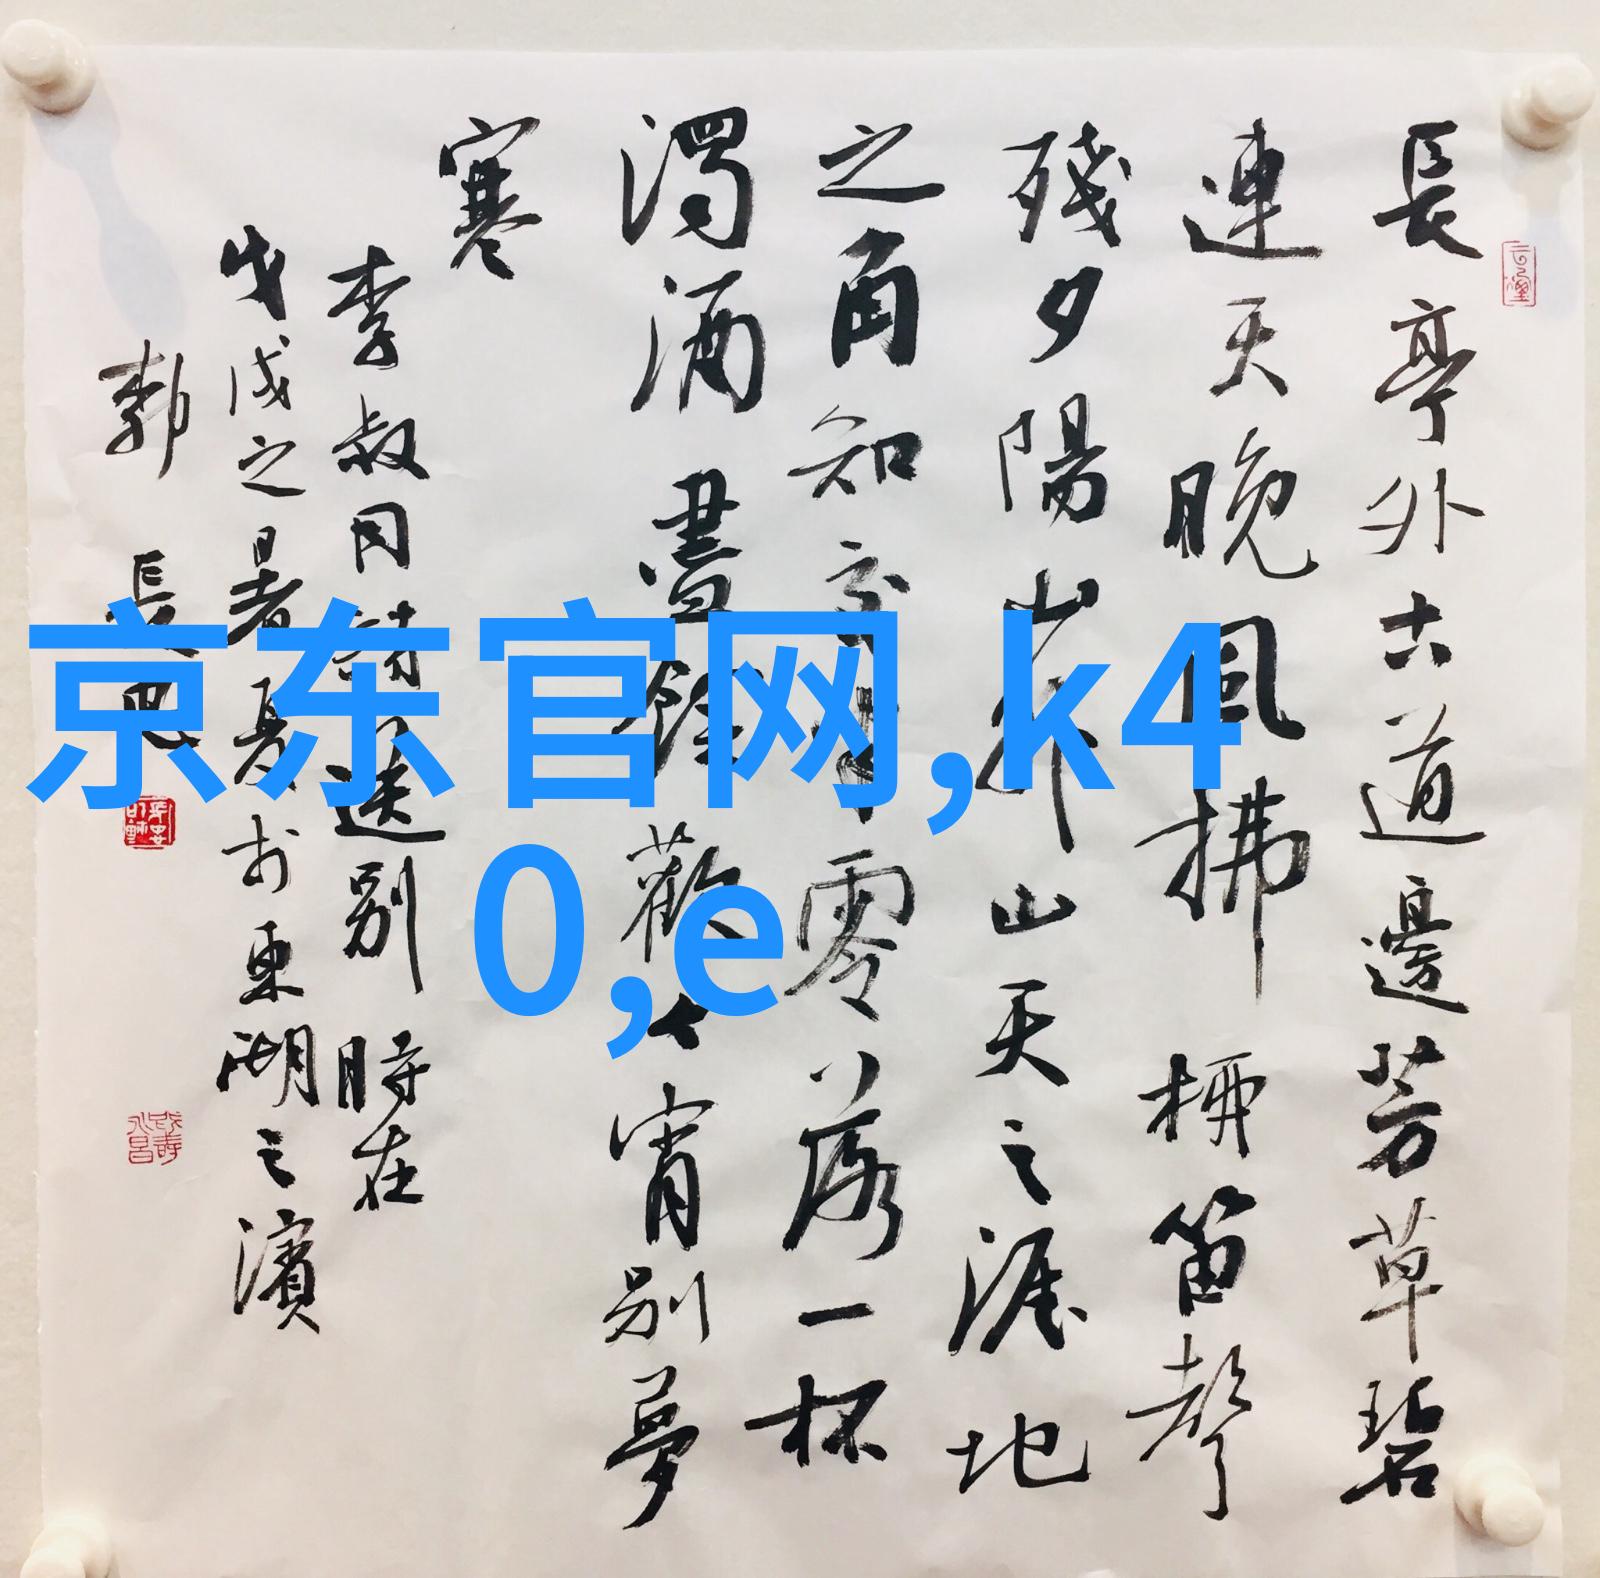 長亭外古道邊芳草碧
連天晚風拂柳笛聲
殘夕陽山外山天之涯地
之角知交半零落一杯
濁酒盡餘歡今宵別夢
寒
李叔同詩送別 時在
戊戌之暑夏於東湖之濱
長
京东官网,k4
0,e